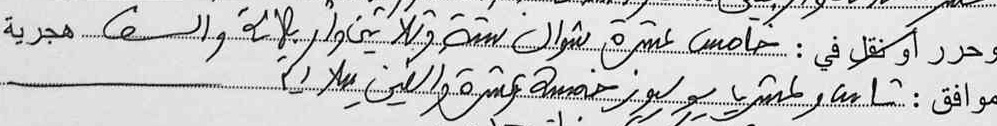 وحرر أو نقل في : خامس عشرة شوال ستة وثلاثين وأربعمائة وألف هجرية
موافق : ثامن وعشرين يوليوز خمسة عشرة وألفين ميلادية